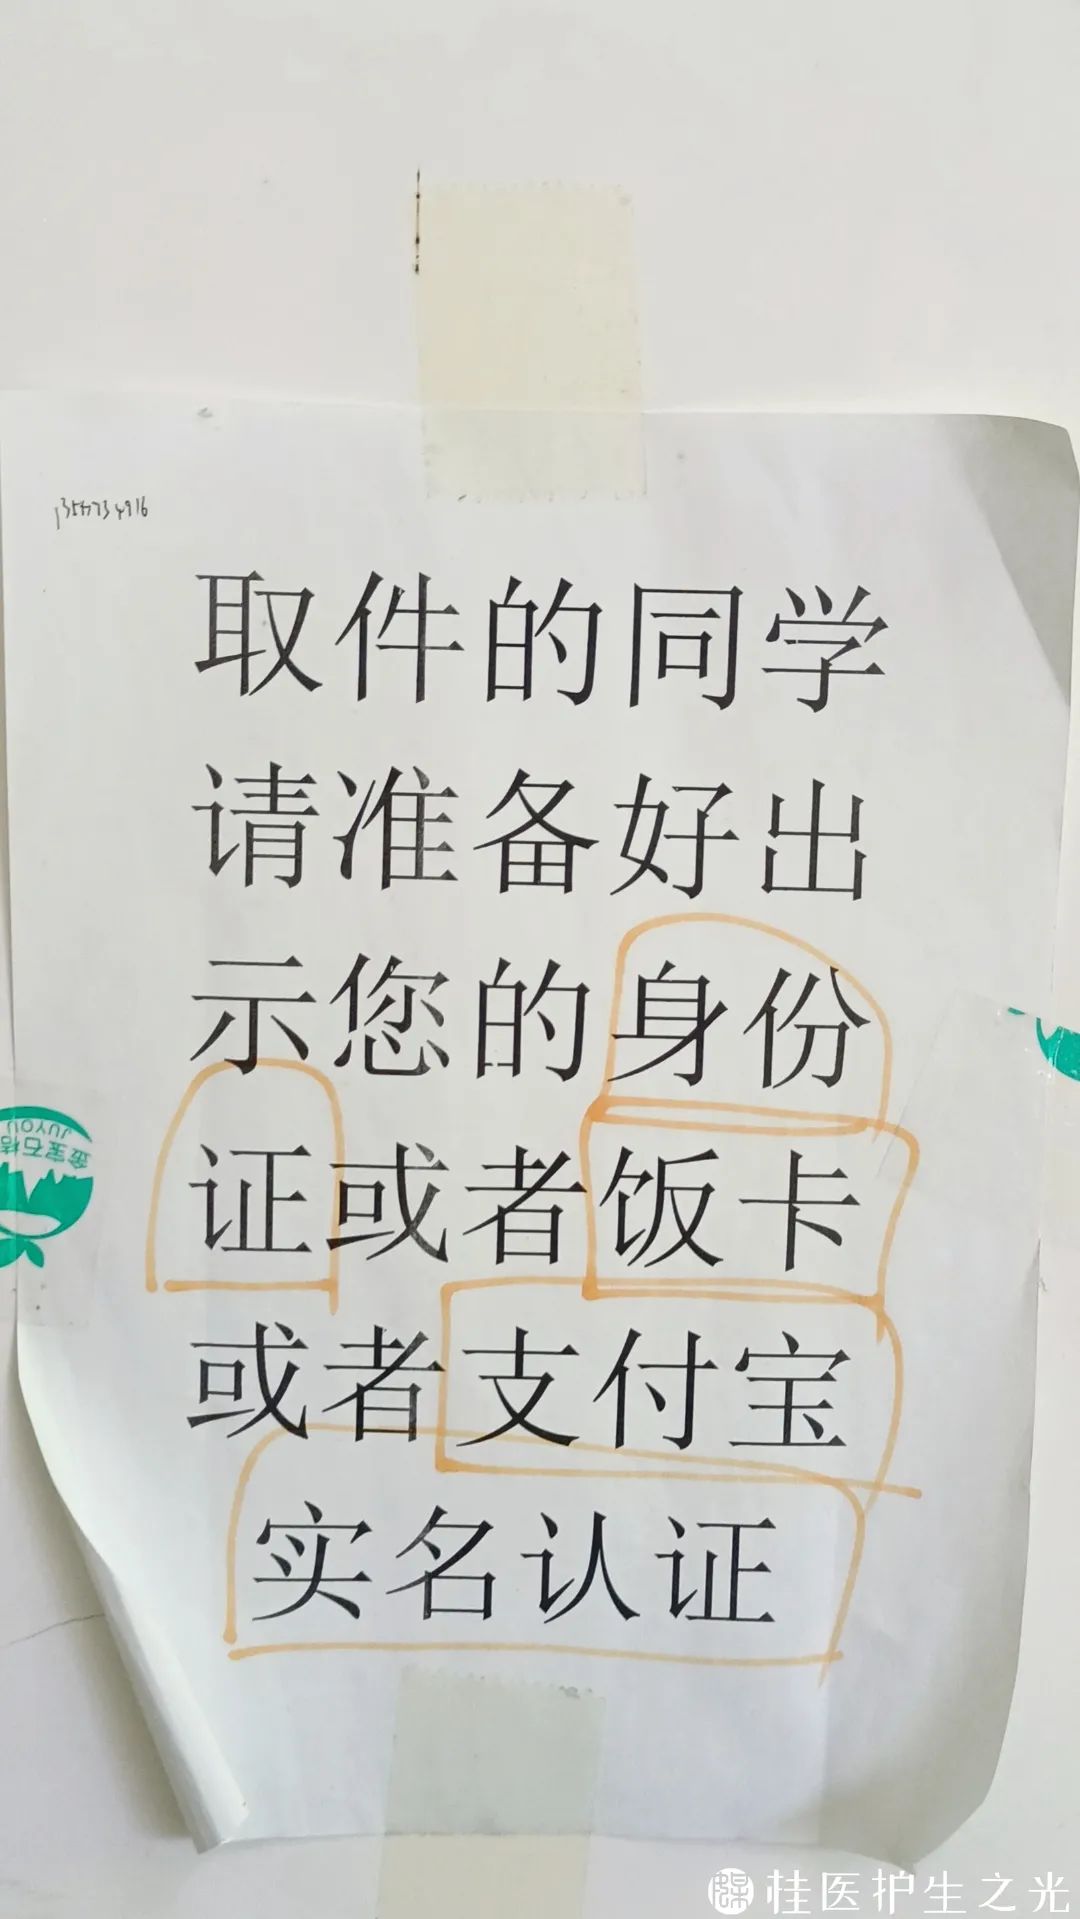 取件的同学
请准备好出
示您的身份
证或者饭卡
或者支付宝
实名认证
JUYOU
金宝石桔
桂医护生之光